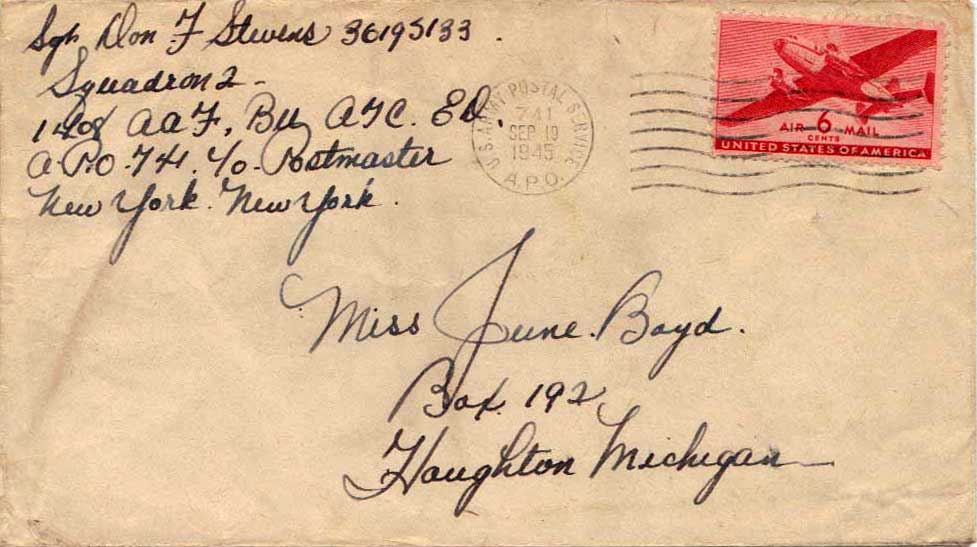 Sgt. Don F Stevens 36195133.
Squadron 2-
1408 AAF, BU ATC. ED.
A.P.O. 741. c/o- Postmaster
New York. New York.
U.S. ARMY POSTAL SERVICE
741
SEP 19
1945
A.P.O.
AIR 6 MAIL
CENTS
UNITED STATES OF AMERICA
Miss June. Boyd.
Box 192,
Houghton Michigan